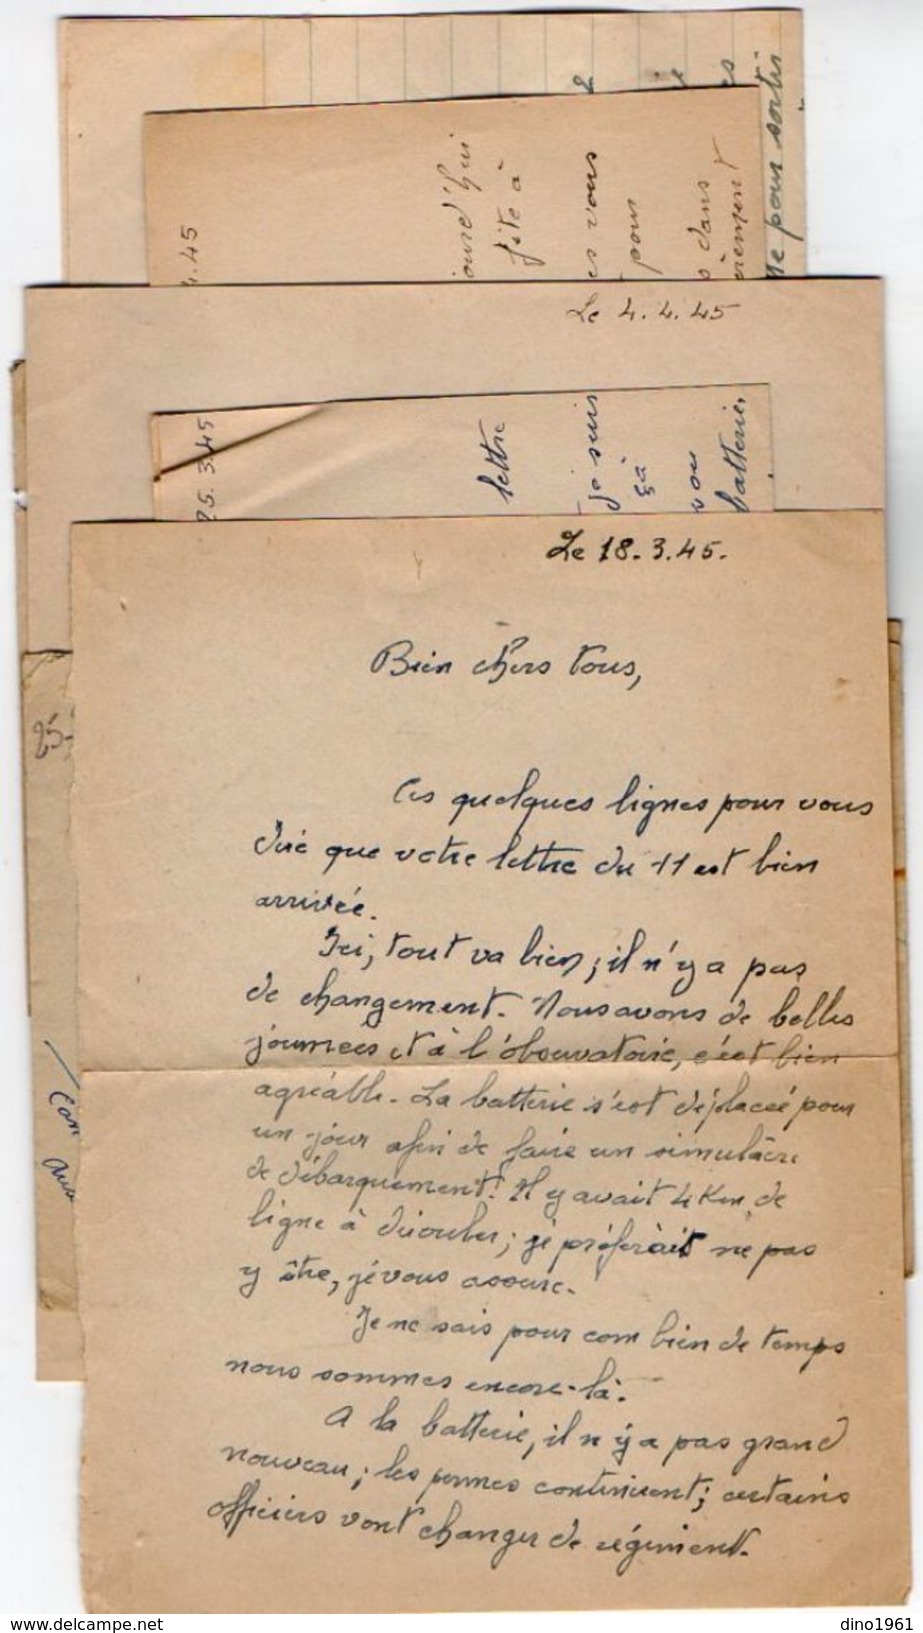 2
ie
es
pour sortir
jourd'hui
fite à
es vous
pour
s dans
rement
4.45
Le 4.4.45
25.3.45
lettre
je suis
çà
vou
batterie,
Le 18.3.45.
Bien chers tous,
Ces quelques lignes pour vous
dire que votre lettre du 11 est bien
arrivée.
Ici, tout va bien; il n'y a pas
de changement. Nous avons de belles
journées et à l'observatoire, c'est bien
agréable. La batterie s'est déplacée pour
un jour afin de faire un simulâcre
de débarquement! Il y avait 4 Km. de
ligne à dérouler; je préferait ne pas
y être, je vous assure.
Je ne sais pour combien de temps
nous sommes encore là.
A la batterie, il n'y a pas grand
nouveau; les permes continuent; certains
officiers vont changer de régiment.
25-
delcampe.net
dino1961